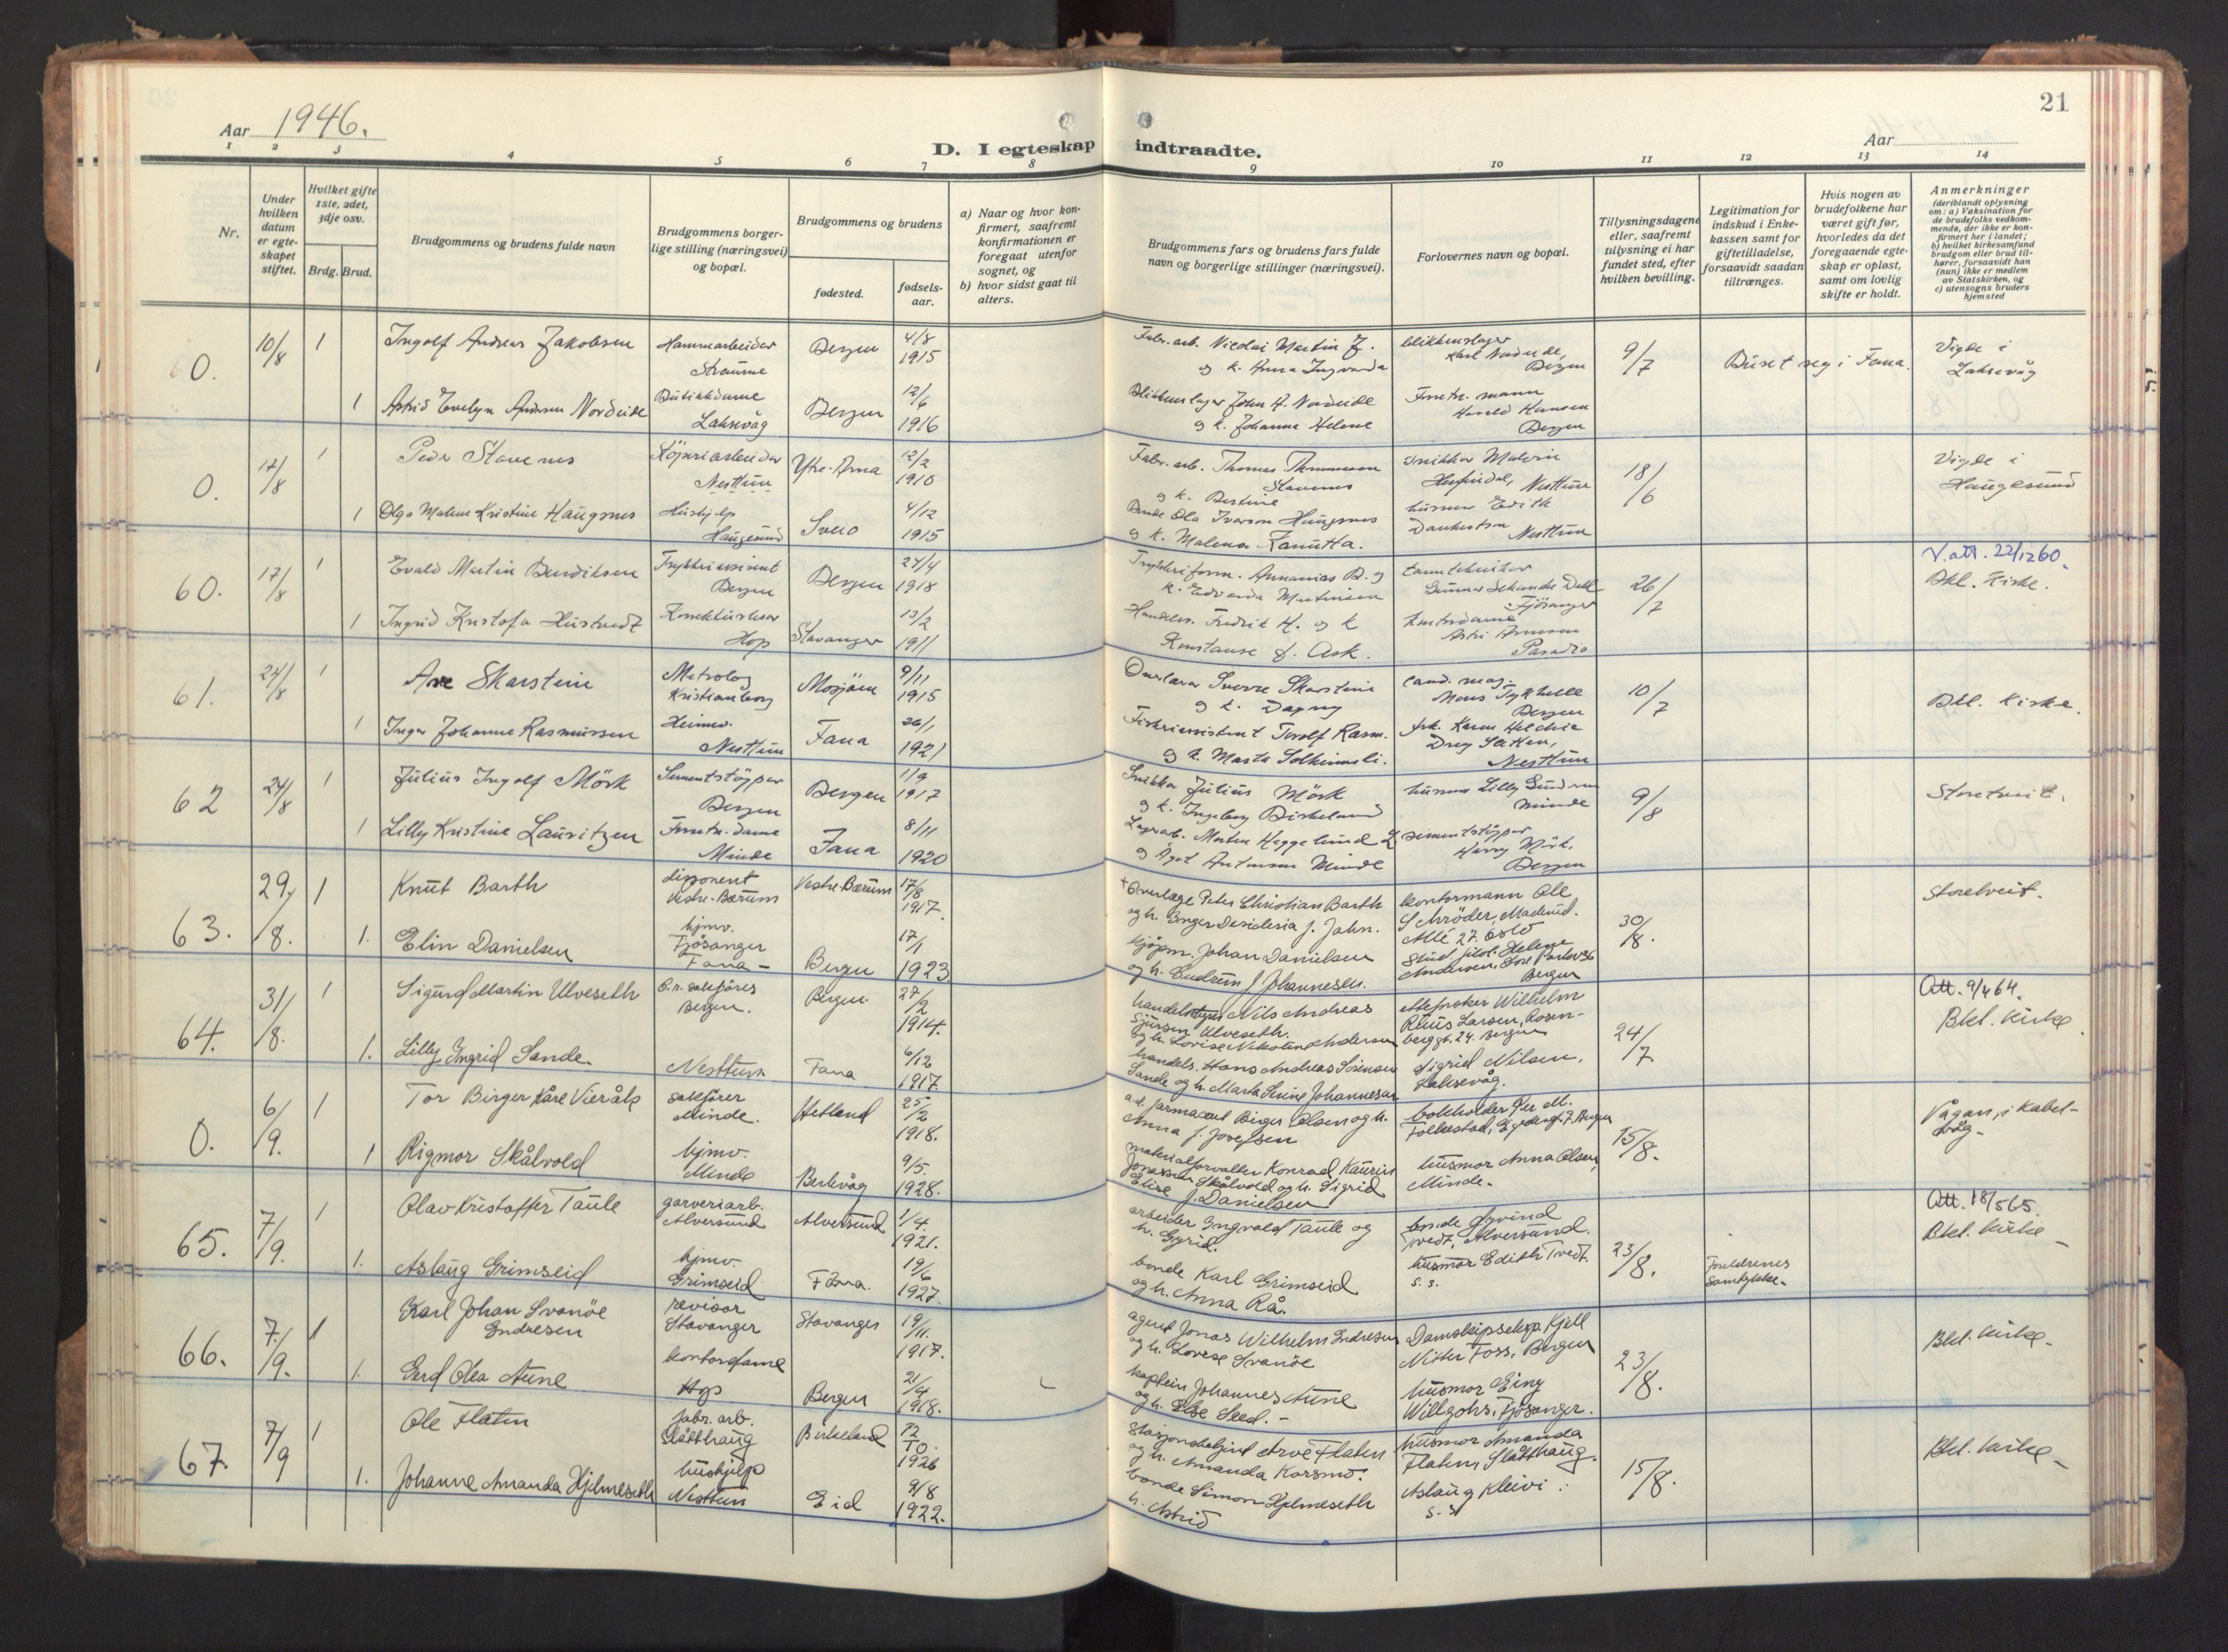 21
Aar 1946.
D. I egteskap indtraadte.
Aar
1 2 3 4 5 6 7 8 9 10 11 12 13 14
Nr.
Under hvilken datum er egteskapet stiftet.
Hvilket gifte 1ste, 2det, 3dje osv.
Brdg. Brud.
Brudgommens og brudens fulde navn
Brudgommens borgerlige stilling (næringsvei) og bopæl.
Brudgommens og brudens
fødested.
fødselsaar.
a) Naar og hvor konfirmert, saafremt konfirmationen er foregaat utenfor sognet, og
b) hvor sidst gaat til alters.
Brudgommens fars og brudens fars fulde navn og borgerlige stillinger (næringsvei).
Forlovernes navn og bopæl.
Tillysningsdagene eller, saafremt tillysning ei har fundet sted, efter hvilken bevilling.
Legitimation for indskud i Enkekassen samt for giftetilladelse, forsaavidt saadan tiltrænges.
Hvis nogen av brudefolkene har været gift før, hvorledes da det foregaaende egteskap er opløst, samt om lovlig skifte er holdt.
Anmerkninger (deriblandt oplysning om: a) Vaksination for de brudefolks vedkommende, der ikke er konfirmert her i landet; b) hvilket kirkesamfund brudgom eller brud tilhører, forsaavidt han (hun) ikke er medlem av Statskirken, og c) utensogns bruders hjemsted
0. 10/8 1 Ingolf Andreas Jakobsen Hammarbeider Straume Bergen 4/8 1915 Fabr. arb. Nicolai Martin J. og k. Anna Ingvarda blikkenslager Karl Nordeide, Bergen 9/7 Buset seg i Fana. Vigde i Laksevåg
1 Astrid Evelyn Andrea Nordeide Butikkdame Laksevåg Bergen 12/6 1916 Blikkenslager John A. Nordeide og k. Johanna Helene Forretn. mann Harald Hansen Bergen
0. 17/8 1 Peder Stavenes Nesttun Ytre-Arna 12/2 1910 Fabr. arb. Thomas Thomassen Stavenes og k. Bertine snikkar Nesttun 18/6 Vigde i Haugesund
1 Olga Malene Kristine Haugsnes Hushjelp Haugesund Sveio 4/12 1915 Bonde Ola Iversen Haugsnes og k. Malena Kanutta. husmor Edith Nesttun
60. 17/8 1 Evald Martin Bendiksen Bergen Bergen 27/4 1918 Ananias B. og k. Edvarda Martinsen tanntekniker Gunnar Dahl Fjösanger 26/7 V. att. 22/12 60. Bkl. Kirke.
1 Ingrid Kristofa Hustvedt Korrekturleser Hop Stavanger 13/2 1911 Handelsr. Fredrik H. og k. Konstanse f. Ask. kontordame Astri Arnesen Paradis
61. 24/8 1 Are Skarstein Metrolog Kristianborg Mosjøen 9/11 1915 Sverre Skarstein og k. Dagny cand. mag. Mons Bergen 10/7 Bkl. Kirke.
1 Inger Johanne Rasmussen Heimev. Nesttun Fana 26/1 1921 Fiskeriassistent Torolf Rasm. og k. Marta Solheimsli. frk. Karen Nesttun
62 24/8 1 Julius Ingolf Mörk Sementstöypar Bergen Bergen 1/9 1917 Snikkar Julius Mörk og k. Ingeborg Birkeland husmor Lilly Gudrun Minde 9/8 Storetveit.
1 Lilly Kristine Lauritzen Forretn. dame Minde Fana 8/11 1920 Lagerarb. Morten Heggelund L. og Ågot Antonsen Minde sementstöypar Harry Mörk, Bergen
63. 29/8. 1 Knut Barth disponent Vestre-Bærum Vestre-Bærum 17/8 1917. Overlæge Peter Christian Barth og h. Inger Desideria f. Jahn. kontormann Ole Schröder, Madserud. Allé 27. Oslo 30/8. Storetveit.
1. Elin Danielsen hjmv. Fjösanger Fana - Bergen 17/11 1923 kjøpm. Johan Danielsen og h. Gudrun f. Johannesen. Stud. filol. Helene Andersen, Store Parkv. 36 Bergen
64. 31/8. 1 Sigurd Martin Ulveseth o.r. sakförer Bergen. Bergen 27/2 1914. Nils Andreas Sjursen Ulveseth. og h. Lovise Nikoline Andersen Wilhelm Ruus Larsen, Rosenberggt. 24. Bergen 24/7 Att. 9/4 64. Bkl. Kirke.
1. Lilly Ingrid Sande. Nesttun Fana 6/12 1917 handels. Hans Andreas Sörensen Sande og h. Marta Serine Johannesen Sigrid Nilsen, Laksevåg.
0. 6/9. 1 Tor Birger Kåre Vieråls sakförer Minde. Hetland 25/2 1918. a.d. farmaceut Birger Olsen og h. Anna f. Josefsen bokholder Per M. Folkestad, Bergen 15/8. Vågan, i Kabelvåg -
1 Rigmor Skålvold hjmv. Minde Berlevåg 9/5. 1928. materialforvalter Konrad Kaurius Jonassen Skålvold og h. Sigrid Elise f. Danielsen husmor Anna Olsen, Minde.
65. 7/9. 1 Olav Kristoffer Taule garveriarb. Alversund Alversund 1/4. 1921. arbeider Engvald Taule og h. Gyrid. bonde Öyvind Tvedt, Alversund. 23/8. Foreldrenes samtykke. Att. 18/5 65. Bkl. Kirke -
1. Aslaug Grimseid hjmv. Grimseid Fana. 19/6 1927. bonde Karl Grimseid og h. Anna Rå. husmor Edith Tvedt. s. s.
66. 7/9. 1 Karl Johan Svanöe Endresen revisor Stavanger Stavanger 19/11. 1917. agent Jonas Wilhelm Endresen og h. Lovise Svanöe Damskipseksp. Kjell Nitter Foss, Bergen 23/8. Bkl. Kirke -
1. Gerd Olea Aune kontordame Hop Bergen 21/4 1918. kaptein Johannes Aune og h. Else Seed. - husmor Einy Willgohs, Fjösanger.
67. 7/9 1 Ole Flaten fabr. arb. Slåtthaug Birkeland 12/10. 1926 Stasjonsbetjent Arve Flaten og h. Amanda Korsmo. husmor Amanda Flaten, Slåtthaug. 15/8. Bkl. Kirke -
1. Johanne Amanda Hjelmeseth hushjelp Nesttun Eid 9/8 1922. bonde Simon Hjelmeseth h. Astrid Aslaug Kleivi s. s.